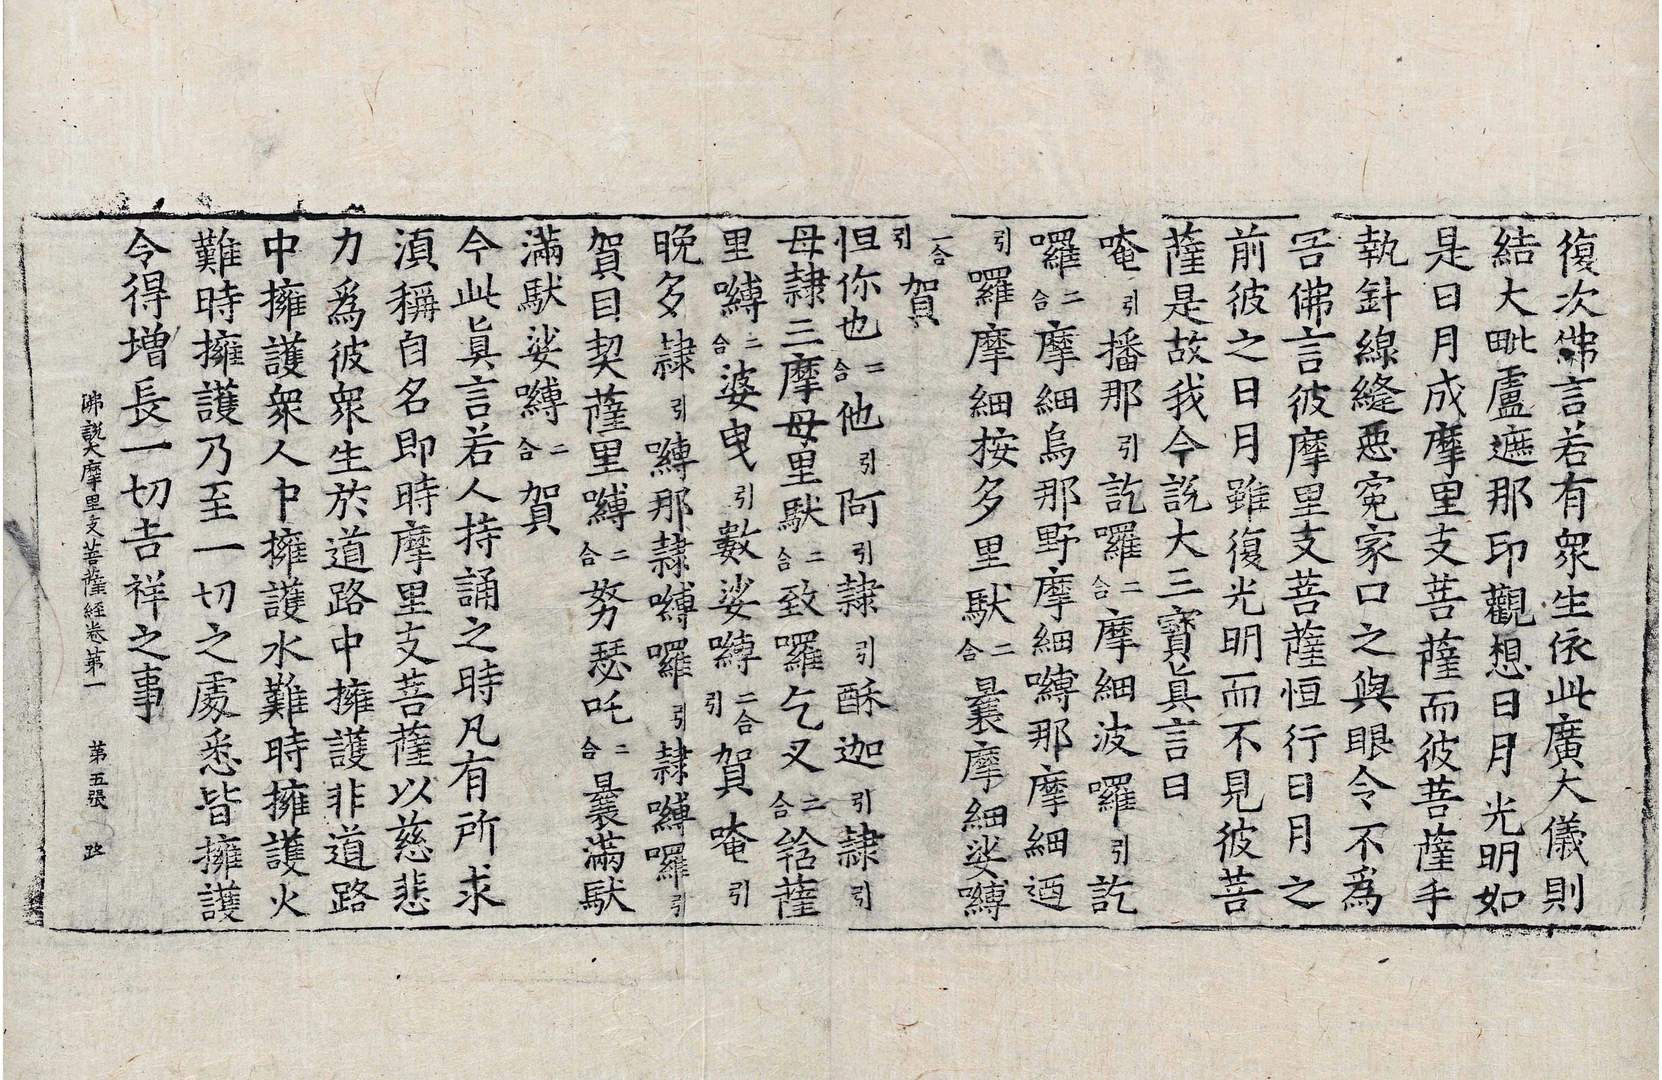 復次佛言若有衆生依此廣大儀則
結大毗盧遮那印觀想日月光明如
是日月成摩里支菩薩而彼菩薩手
執針線縫惡寃家口之與眼令不爲
害佛言彼摩里支菩薩恒行日月之
前彼之日月雖復光明而不見彼菩
薩是故我今說大三寶眞言曰
唵引播那引訖囉二合摩細波囉引訖
囉二合摩細烏那野摩細嚩那摩細遒
引囉摩細按多里馱二合曩摩細娑嚩
二合引賀
怛你也二合他引阿引隷引酥迦引隷引
母隷三摩母里馱二合致囉乞叉二合給薩
里嚩二合婆曳引數娑嚩二合引賀唵引
晚多隷引嚩那隷嚩囉引隷嚩囉引
賀目契薩里嚩二合努瑟吒二合曩滿馱
滿馱娑嚩二合賀
今此眞言若人持誦之時凡有所求
湏稱自名即時摩里支菩薩以慈悲
力爲彼衆生於道路中擁護非道路
中擁護衆人中擁護水難時擁護火
難時擁護乃至一切之處悉皆擁護
令得增長一切吉祥之事
佛說大摩里支菩薩經卷第一 第五張 路